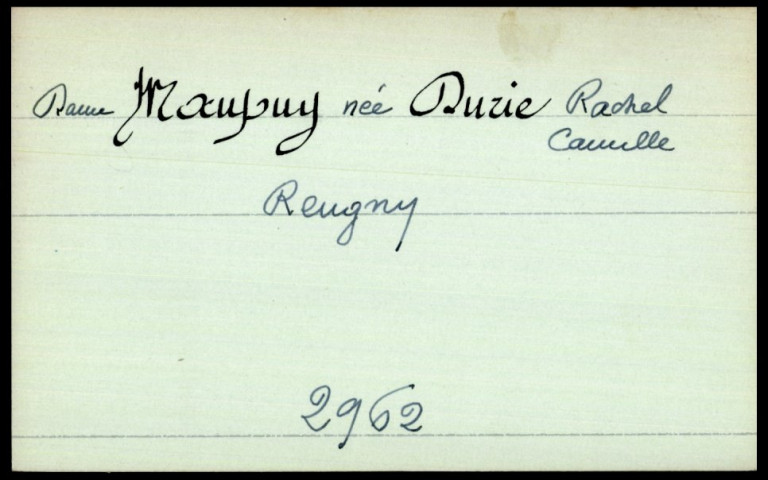 Dame Maupuy née Durie Rachel
Camille
Reugny
2962